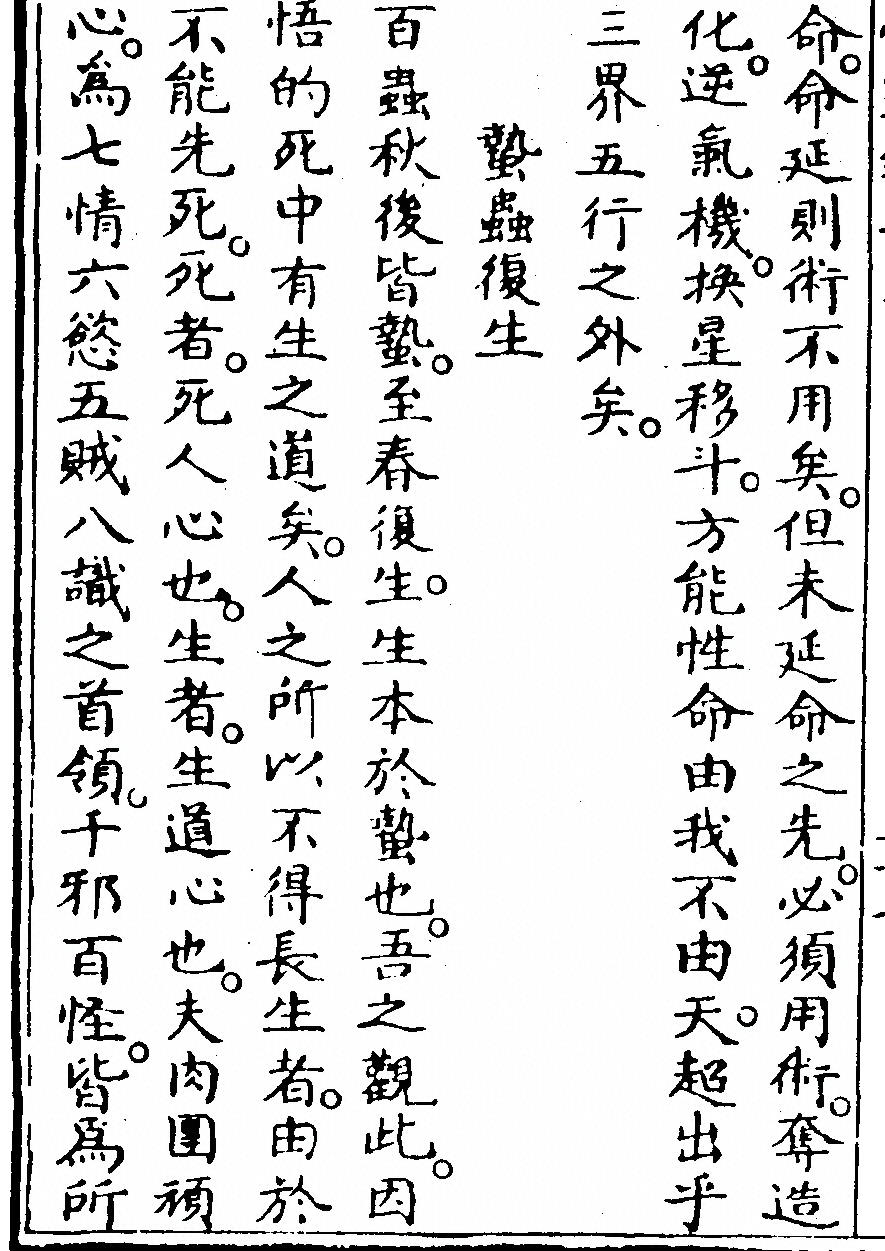 命。命延則術不用矣。但未延命之先。必須用術。奪造
化。逆氣機。換星移斗。方能性命由我不由天。超出乎
三界五行之外矣。
蟄蟲復生
百蟲秋後皆蟄。至春復生。生本於蟄也。吾之觀此。因
悟的死中有生之道矣。人之所以不得長生者。由於
不能先死。死者。死人心也。生者。生道心也。夫肉團頑
心。爲七情六慾五賊八識之首領。千邪百怪。皆爲所